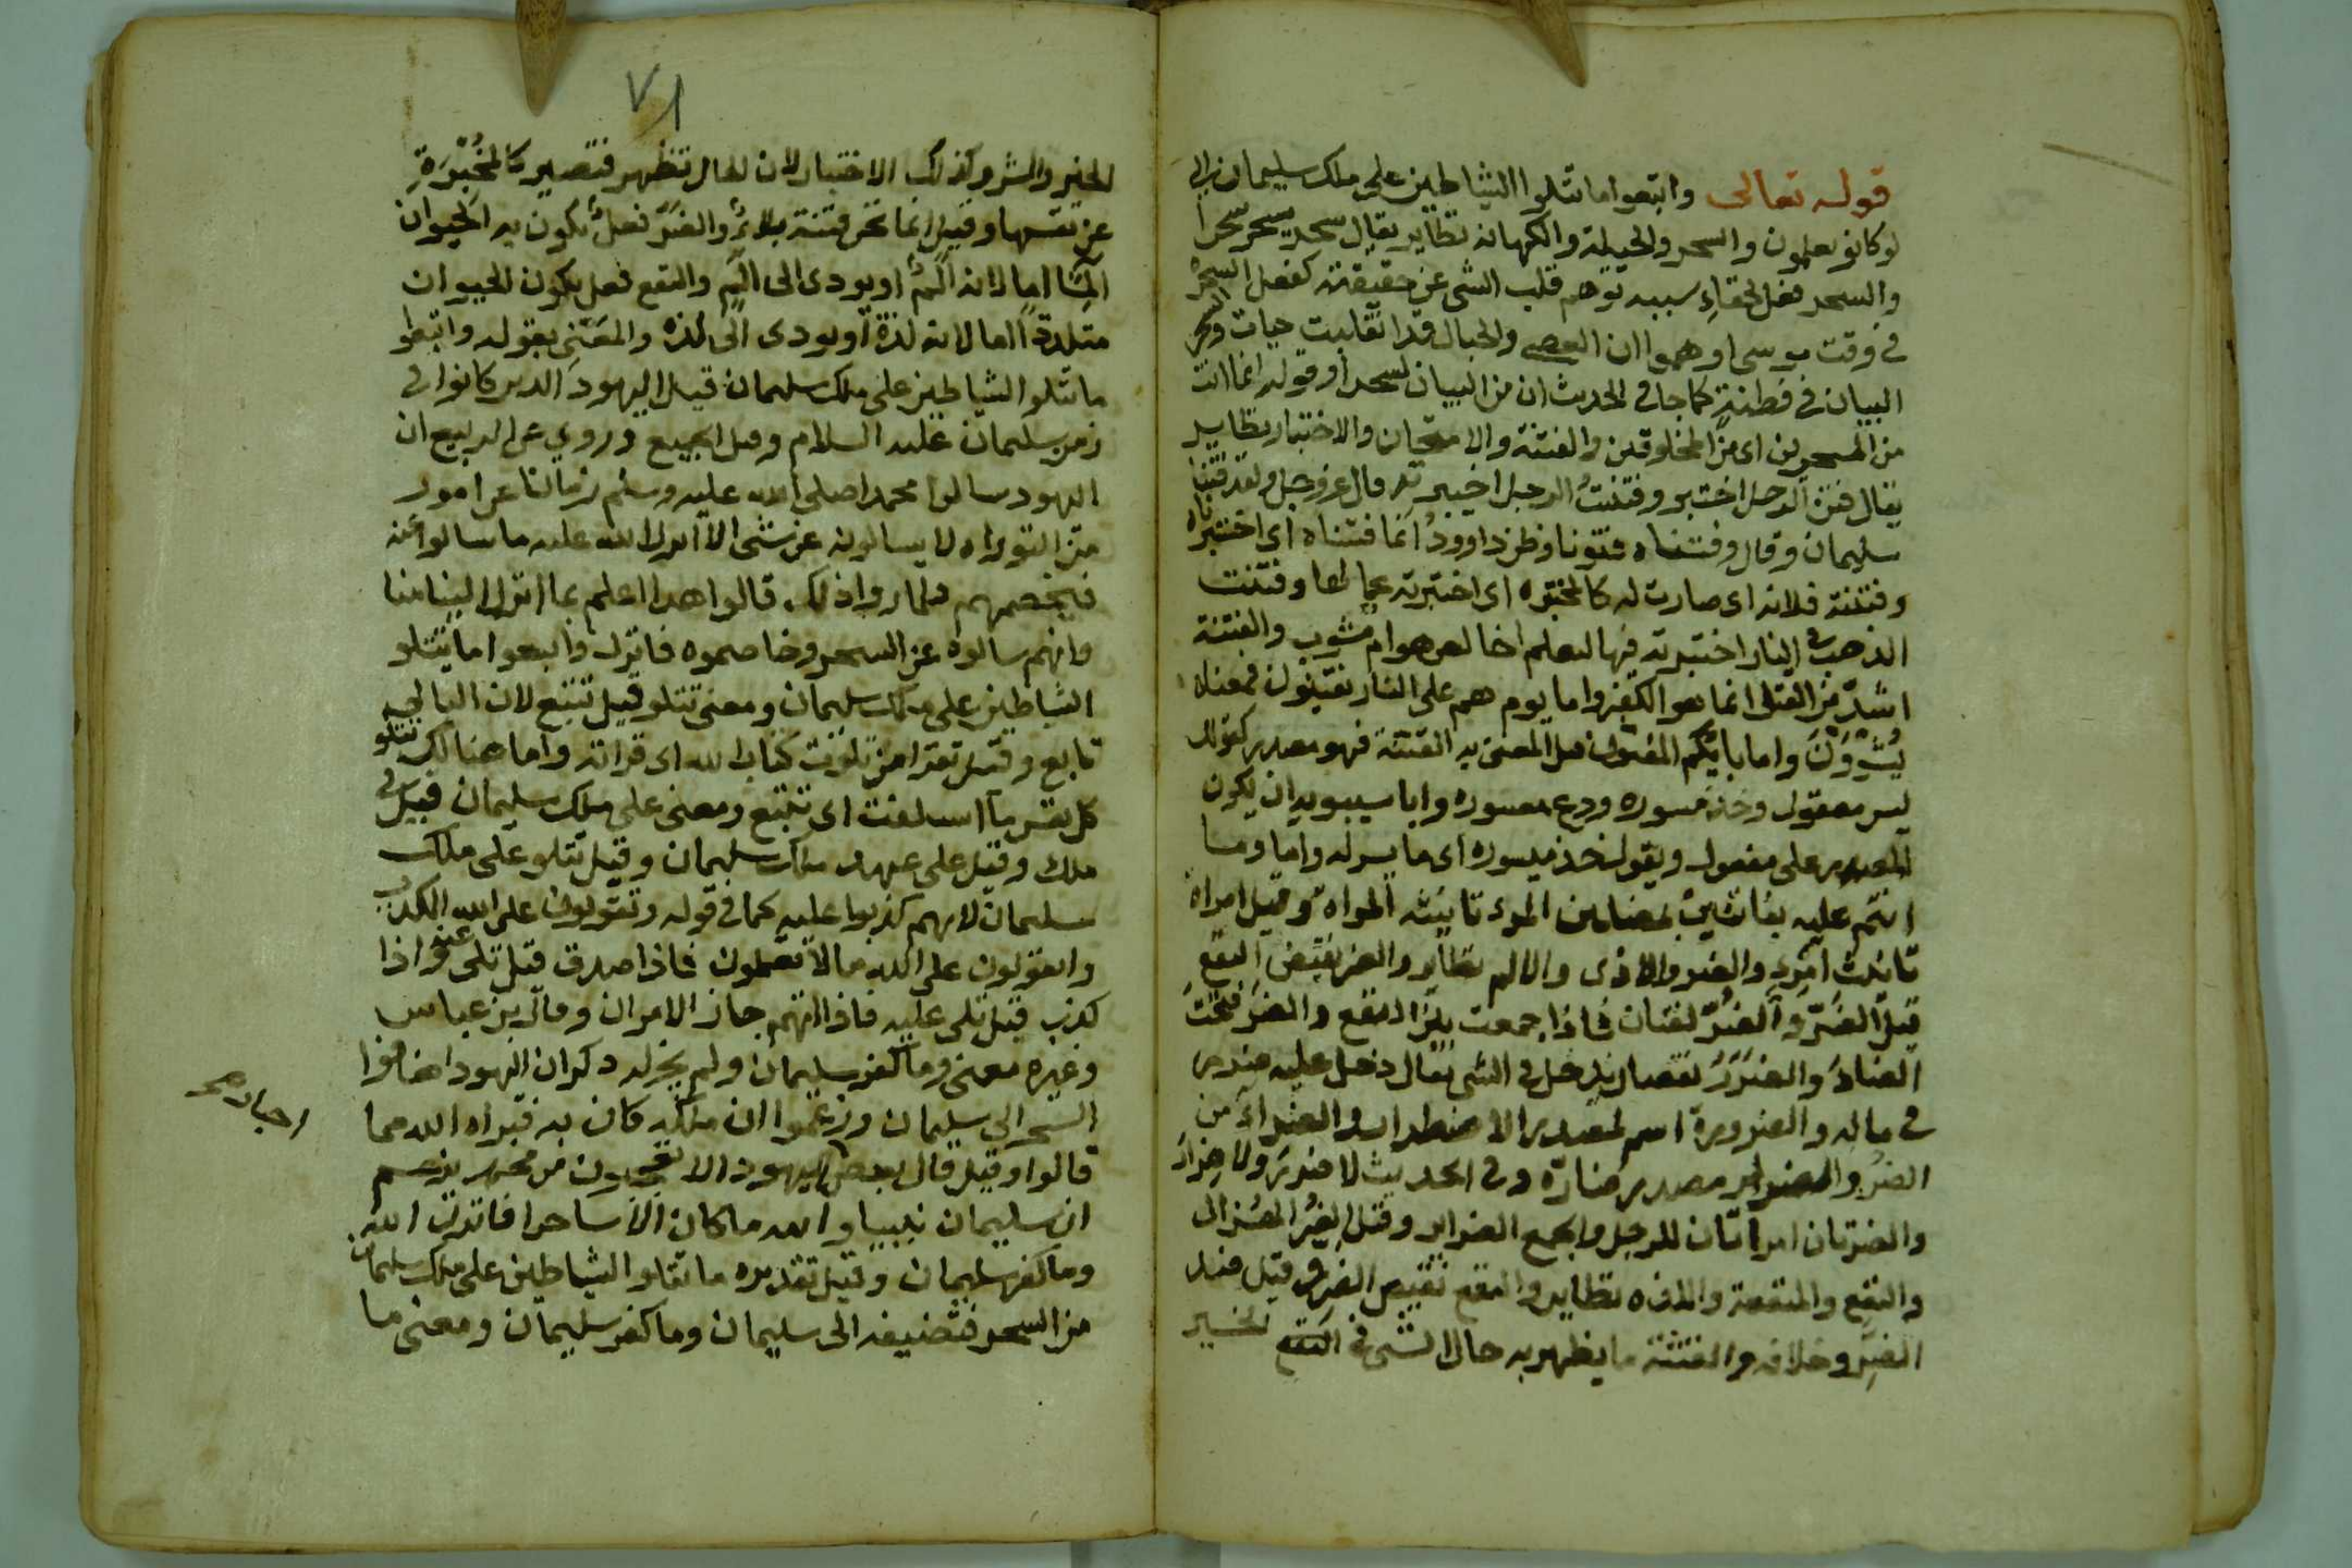 قوله تعالى واتبعوا ما تتلوا الشياطين على ملك سليمان الى
لو كانو يعلمون والسحر والحيلة والكهانه نظاير يقال سحر يسحر سحرا
والسحر فعل لخفاء سببه توهم قلب الشى عن حقيقته كفعل السحرة
فى وقت موسى اوهموا ان العصي والحبال قد انقلبت حيات والسحر
البيان فى فطنة كما جا فى الحديث ان من البيان لسحرا وقوله انما انت
من المسحرين اى من المخلوقين والفتنة والامتحان والاختبار نظاير
يقال فتن الرجل اختبر وفتنت الرجل اختبرته قال عز وجل ولقد فتنا
سليمان وقال وفتناه فتونا وظن داوود انما فتناه اى اختبرناه
وفتنته فلانه اى صارت له كالمختبره اى اختبرته بجمالها وفتنت
الذهب فى النار اختبرته فيها لتعلم اخالص هو ام مشوب والفتنة
اشد من القتل انما هو الكفر واما يوم هم على النار يفتنون فمعناه
يشوون واما بايكم المفتون قيل المعنى به الفتنة فهو مصدر كقولك
ليس معقول وخذ ميسوره ودع معسوره وابا سيبويه ان يكون
المصدر على مفعول ويقول خذ ميسوره اى ما يسر له واما وما
انتم عليه بفاتنين بمضلين المرء تانيثه المراة وقيل امراة
تانيث امرء والضر والاذى والالم نظاير والضر نقيض النفع
قيل الضر والضر لغتان فاذا جمعت بين النفع والضر فتحت
الضاد والضرر نقصان يدخل فى الشى يقال دخل عليه ضرر
فى ماله والضرورة اسم لمصدر الاضطرار والضراء من
الضر والضرار مصدر ضاره وفى الحديث لا ضرر ولا ضرار
والضرتان امراتان للرجل والجمع الضراير وقيل الضر الهزال
والنفع والمنفعة واللذه نظاير والنفع نقيض الضر وقيل ضد
الضر وخلافه والفتنة ما يظهر به حال الشى فى النفع الخير
٧١
الخير والشر وكذلك الاختبار لان الحال تظهر فتصير كالمخبرة
عن نفسها وقيل انما نحن فتنة بلاء والضر فعل يكون به الحيوان
الما اما لانه الم او يودى الى الم والنفع فعل يكون الحيوان
متلذذا اما لانه لذة او يودى الى لذه والمعنى بقوله واتبعوا
ما تتلوا الشياطين على ملك سليمان قيل اليهود الذين كانوا فى
زمن سليمان عليه السلام وقيل الجميع وروي عن الربيع ان
اليهود سالوا محمدا صلى الله عليه وسلم زمانا عن امور
من التوراه لا يسالونه عن شى الا انزل الله عليه ما سالوا عنه
فيخصمهم فلما راوا ذلك قالوا هذا اعلم بما انزل الينا منا
وانهم سالوه عن السحر وخاصموه فانزل واتبعوا ما تتلو
الشياطين على ملك سليمان ومعنى تتلو قيل تتبع لان التالى
تابع وقيل تقرا من تلوت كتاب الله اى قراته واما هنالك تتلو
كل نفس ما اسلفت اى تتبع ومعنى على ملك سليمان قيل فى
ملك وقيل على عهد ملك سليمان وقيل تتلو على ملك
سليمان لانهم كذبوا عليه كما فى قوله وتقولون على الله الكذب
واتقولون على الله مالا تعلمون فاذا صدق قيل تلى عنه واذا
كذب قيل تلى عليه فاذا اتهم جاز الامران وقال بن عباس
وغيره معنى وما كفر سليمان ولم يجز له ذكر ان اليهود اضافوا
السحر الى سليمان وزعموا ان ملكه كان به فبراه الله مما
احبارهم
قالوا وقيل قال بعض اليهود الا تعجبون من محمد يزعم
ان سليمان نبييا والله ما كان الا ساحرا فانزل الله
وما كفر سليمان وقيل تقديره ما تتلوا الشياطين على ملك سليمان
من السحر فتضيفه الى سليمان وما كفر سليمان ومعنى ما